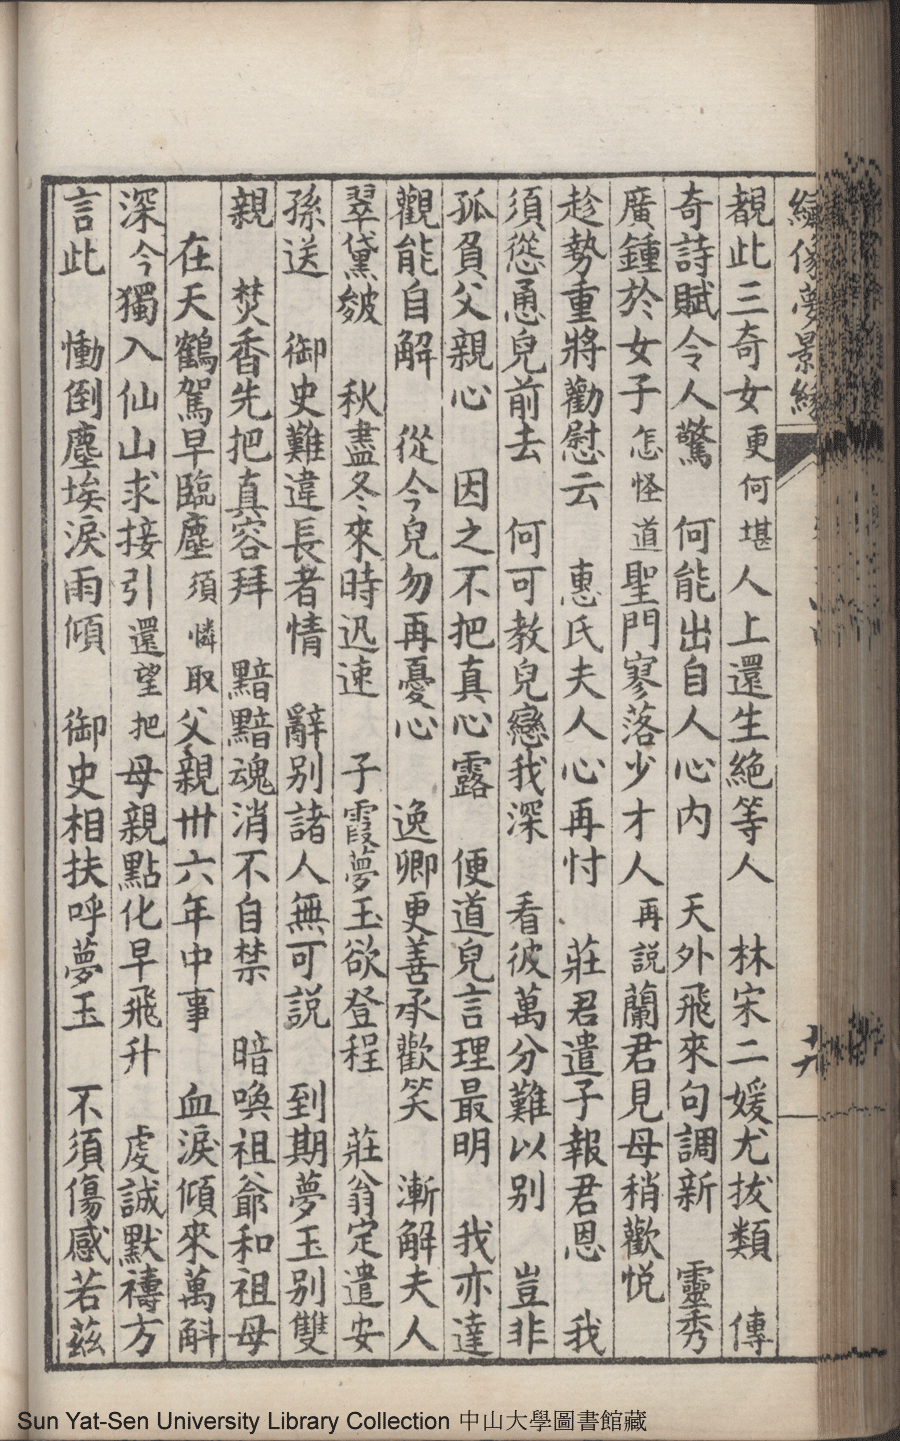 繡像夢景緣
十九
覩此三奇女更何堪人上還生絶等人　林宋二媛尤拔類　傳
奇詩賦令人驚　何能出自人心內　天外飛來句調新　靈秀
廣鍾於女子怎怪道聖門寥落少才人再説蘭君見母稍歡悅
趁勢重將勸慰云　惠氏夫人心再忖　莊君遣子報君恩　我
須慫恿兒前去　何可教兒戀我深　看彼萬分難以别　豈非
孤負父親心　因之不把真心露　便道兒言理最明　我亦達
觀能自解　從今兒勿再憂心　逸卿更善承歡笑　漸解夫人
翠黛皴　秋盡冬來時迅速　子霞夢玉欲登程　莊翁定遣安
孫送　御史難違長者情　辭别諸人無可説　到期夢玉别雙
親　焚香先把真容拜　黯黯魂消不自禁　暗喚祖爺和祖母
在天鶴駕早臨塵須憐取父親卅六年中事　血淚傾來萬斛
深今獨入仙山求接引還望把母親點化早飛升　虔誠默禱方
言此　慟倒塵埃淚雨傾　御史相扶呼夢玉　不須傷感若茲
Sun Yat-Sen University Library Collection 中山大學圖書館藏